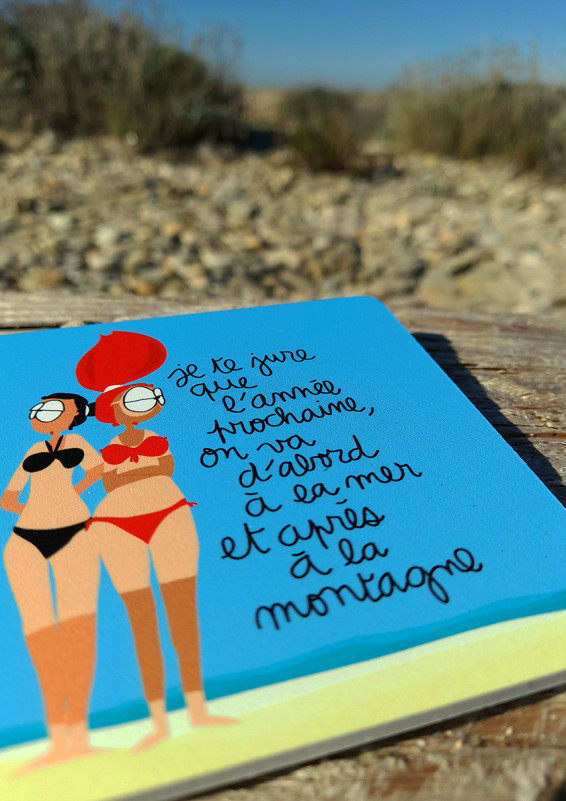 je te jure
que
l'année
prochaine,
on va
d'abord
à la mer
et après
à la
montagne